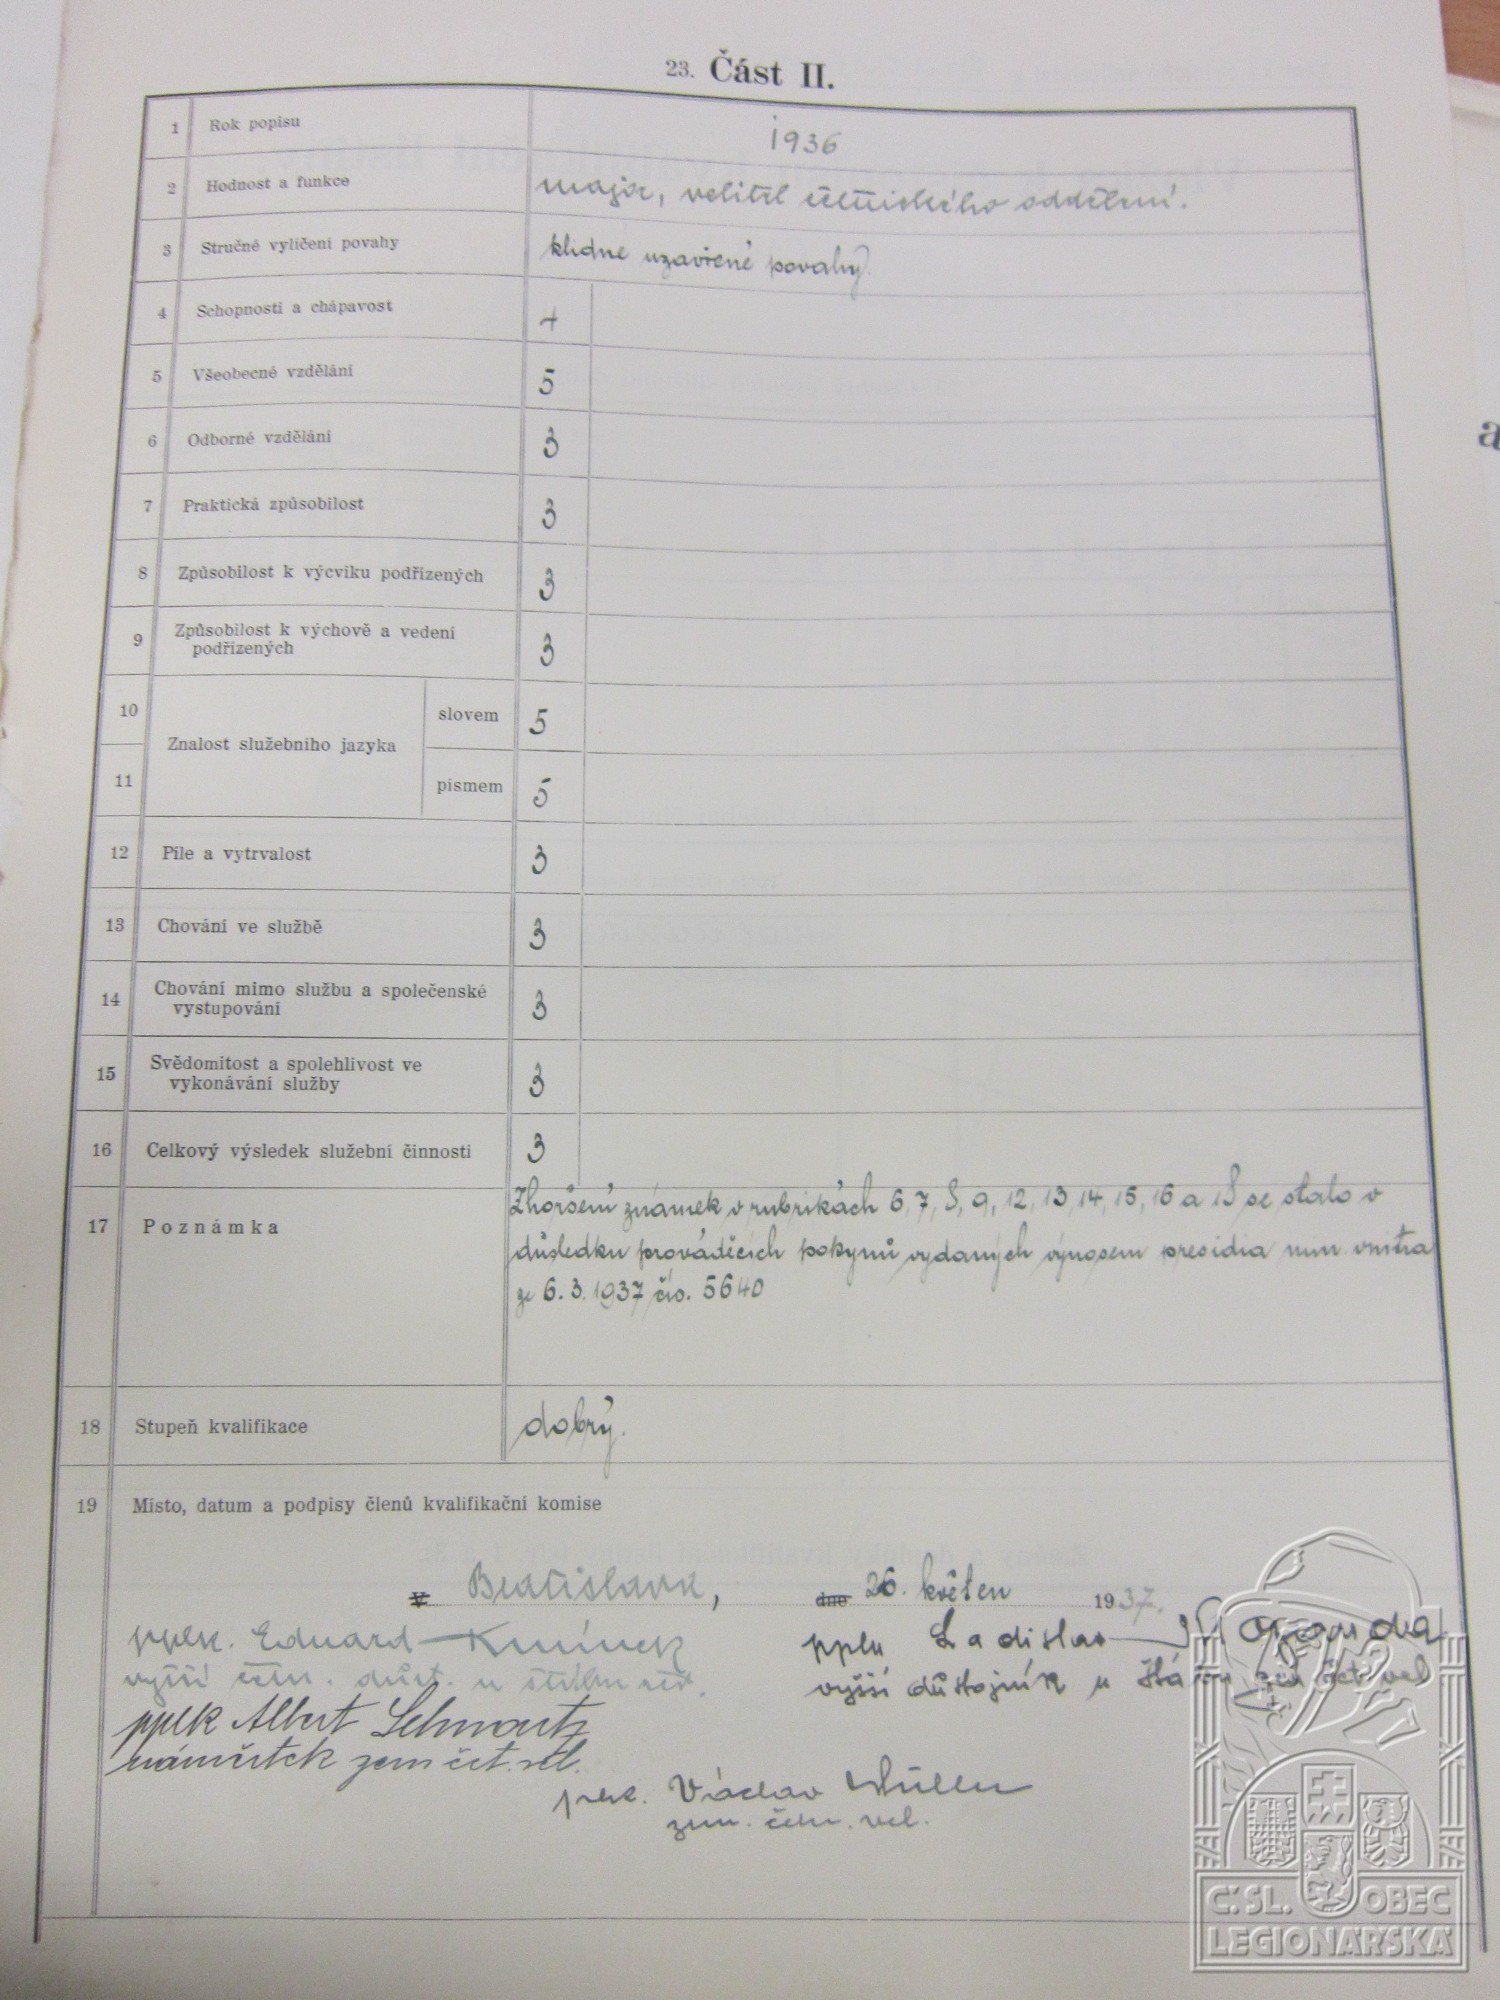 23. Část II.
1 Rok popisu 1936
2 Hodnost a funkce major, velitel četnického oddělení.
3 Stručné vylíčení povahy klidne uzavřené povahy.
4 Schopnosti a chápavost 4
5 Všeobecné vzdělání 5
6 Odborné vzdělání 3
7 Praktická způsobilost 3
8 Způsobilost k výcviku podřízených 3
9 Způsobilost k výchově a vedení
podřízených 3
10 slovem 5
Znalost služebního jazyka
11 písmem 5
12 Píle a vytrvalost 3
13 Chování ve službě 3
14 Chování mimo službu a společenské
vystupování 3
15 Svědomitost a spolehlivost ve
vykonávání služby 3
16 Celkový výsledek služební činnosti 3
17 Poznámka
Zhoršení známek v rubrikách 6, 7, 8, 9, 12, 13, 14, 15, 16 a 18 se stalo v
důsledku prováděcích pokynů vydaných výnosem presidia min. vnitra
ze 6. 3. 1937 čís. 5640
18 Stupeň kvalifikace dobrý.
19 Místo, datum a podpisy členů kvalifikační komise
v Bratislava, dne 26. květen 1937.
pplk. Eduard pplk Ladislav
vyšší četn. důst. u štábu vyšší důstojník u štábu zem čet vel
pplk Albert Schwartz
náměstek zem čet. vel.
plk. Václav Müller
zem. četn. vel.
Č.SL. OBEC
LEGIONÁŘSKÁ